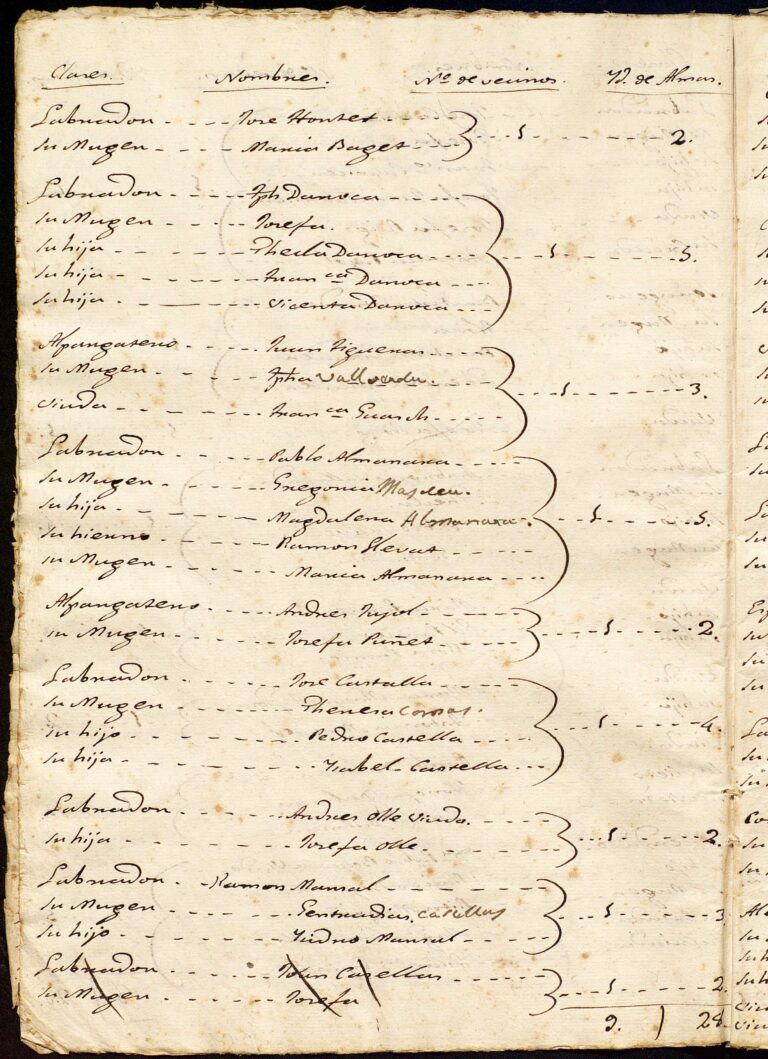 Clases. Nombres. Nº de vecinos. Yd. de Almas.
Labrador - - - - Jose Hortet - - - - 1 - - - - 2.
su Muger - - - Maria Baget
Labrador - - - - Jph Daroca
su Muger - - - - Josefa.
su hija - - - - - Thecla Daroca - - - - 1 - - - - 5.
su hija - - - - - Fran.ca Daroca
su hija - - - - - Vicenta Daroca
Alpargatero - - - - Juan Figueras
su Muger - - - - Jpha Vallverdu. - - - - 1 - - - - 3.
viuda - - - - - Fran.ca Guasch
Labrador - - - - Pablo Almanara
su Muger - - - - Gregoria Masdeu.
su hija - - - - - Magdalena Almanara. - - - - 1 - - - - 5.
su hierno - - - - Ramon Llevat
su Muger - - - - Maria Almanara
Alpargatero - - - - Andres Pujol
su Muger - - - - Josefa Puñet - - - - 1 - - - - 2.
Labrador - - - - Jose Castella
su Muger - - - - Theresa
su hijo - - - - - Pedro Castella - - - - 1 - - - - 4.
su hija - - - - - Ysabel Castella
Labrador - - - - Andres Olle viudo.
su hija - - - - - Josefa Olle - - - - 1 - - - - 2.
Labrador - Ramon Marsal
su Muger - - - - Casellas - - - - 1 - - - - 3
su hijo - - - - - Ysidro Marsal
Labrador Juan Casellas
su Muger - - - - Josefa - - - - 1 - - - - 2.
9. 28.